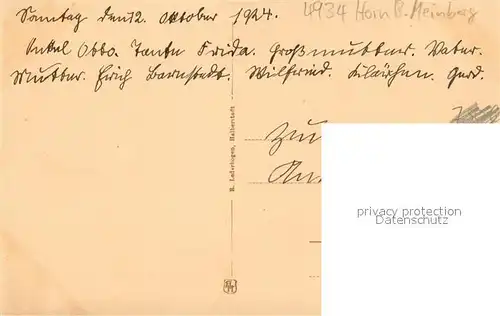 Sonntag den 12. Oktober 1924.
4934 Horn B. Meinberg
Onkel Otto. Tante Frida. Großmutter. Vater.
Mutter. Erich Barnstedt. Wilfried. Klärchen. Gerd.
R. Lederbogen, Halberstadt
Zur
privacy protection
DATENSCHUTZ